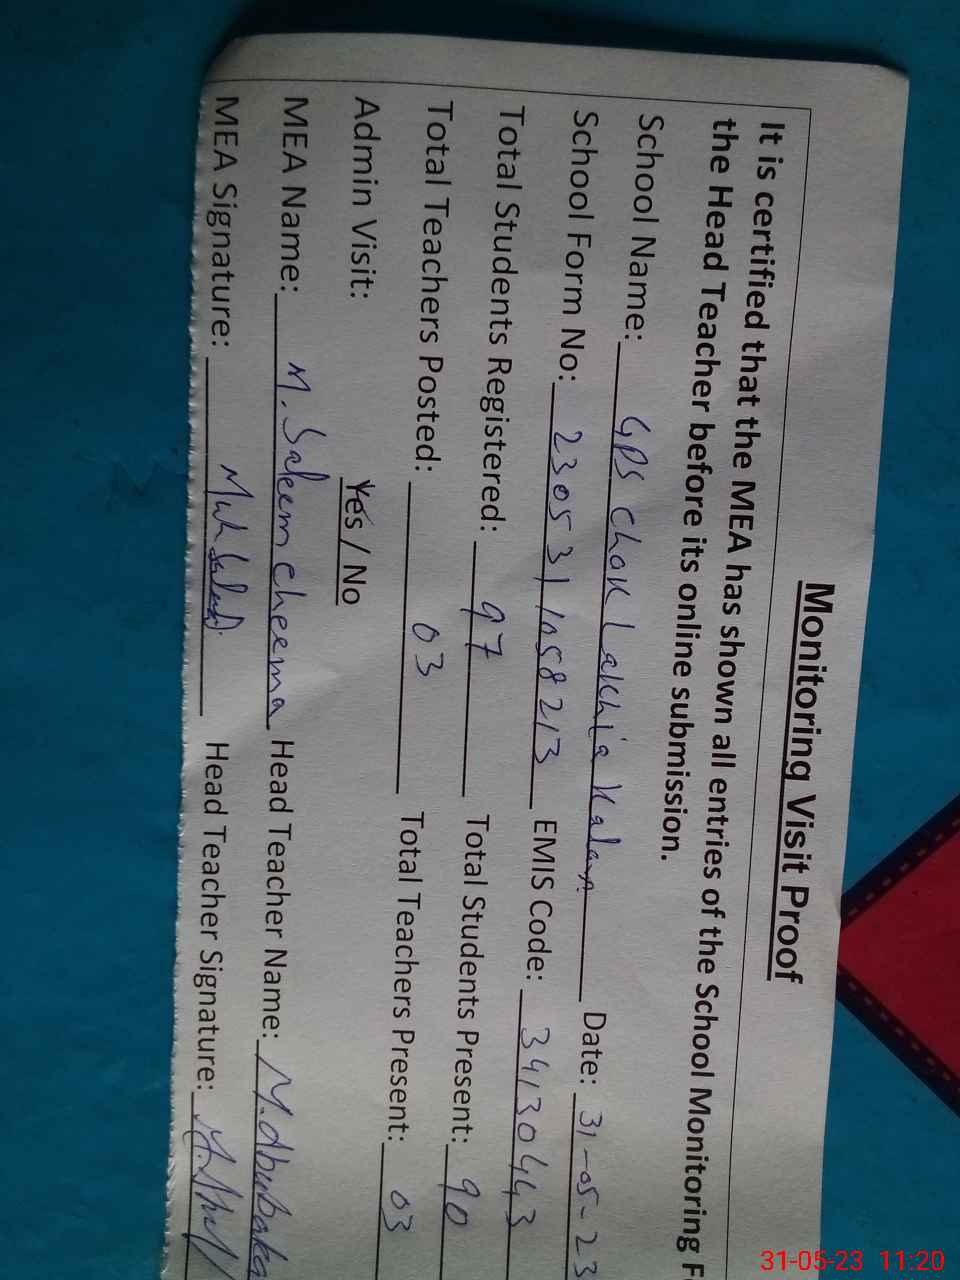 Monitoring Visit Proof
It is certified that the MEA has shown all entries of the School Monitoring F
the Head Teacher before its online submission.
School Name: GPS Chak Lakhia Kalan Date: 31-05-23
School Form No: 2305311058213 EMIS Code: 34130443
Total Students Registered: 97 Total Students Present: 90
Total Teachers Posted: 03 Total Teachers Present: 03
Admin Visit: Yes / No
MEA Name: M. Saleem Cheema Head Teacher Name: M. Abubaka
MEA Signature: Head Teacher Signature:
31-05-23 11:20